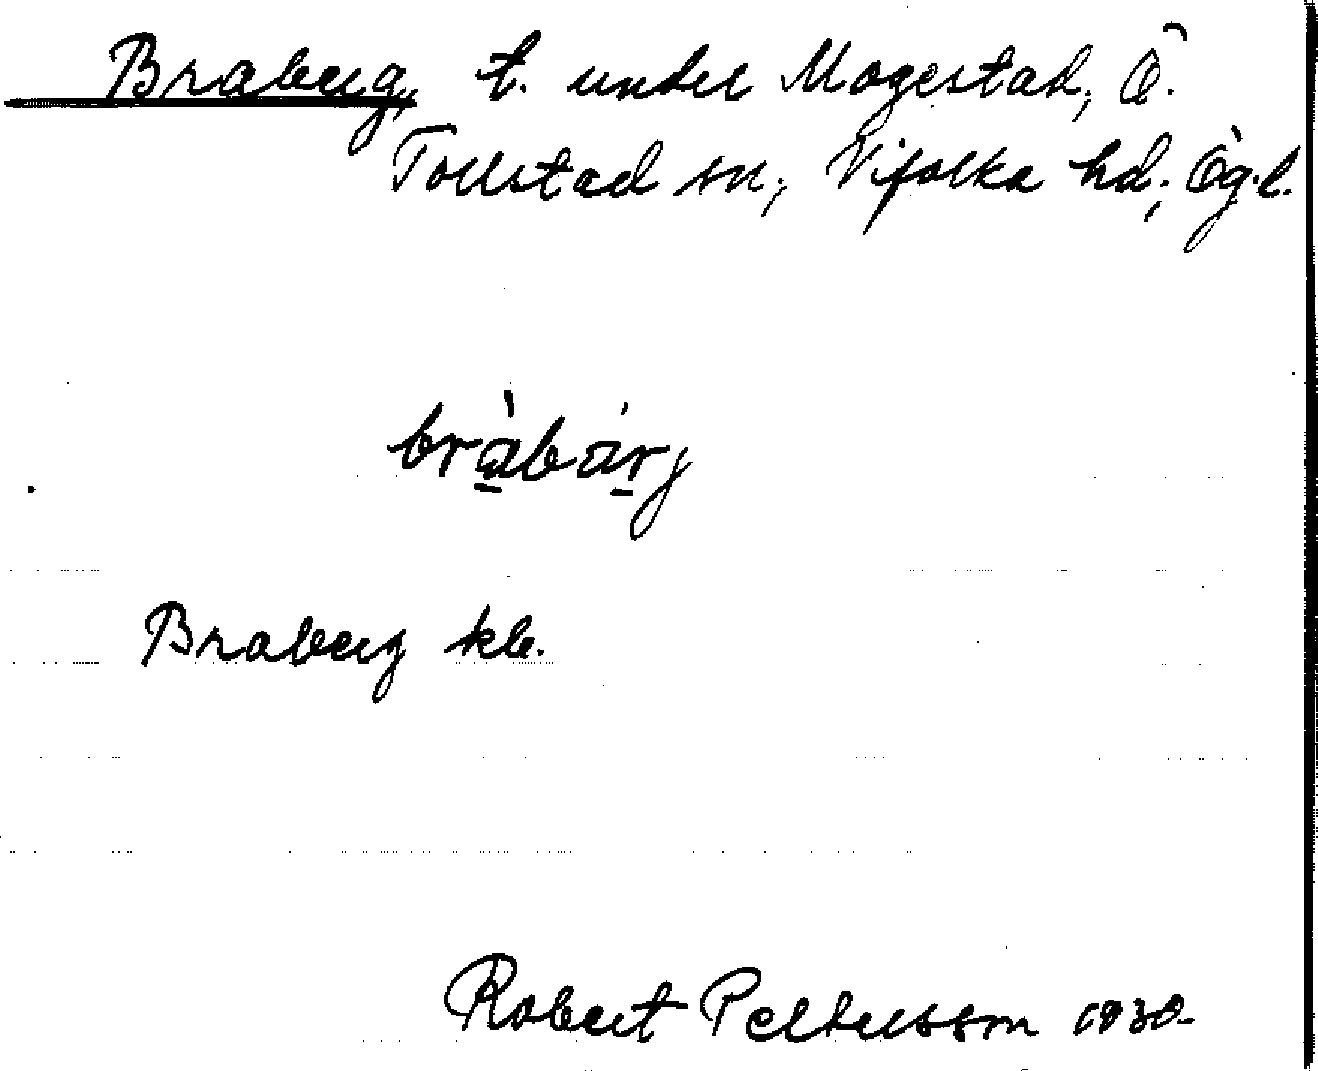 Braberg, t. under Mogestad, Ö.
Tollstad sn; Vifolka hd; Ög.l.
bràbárj
Braberg kb.
Robert Pettersson 1930